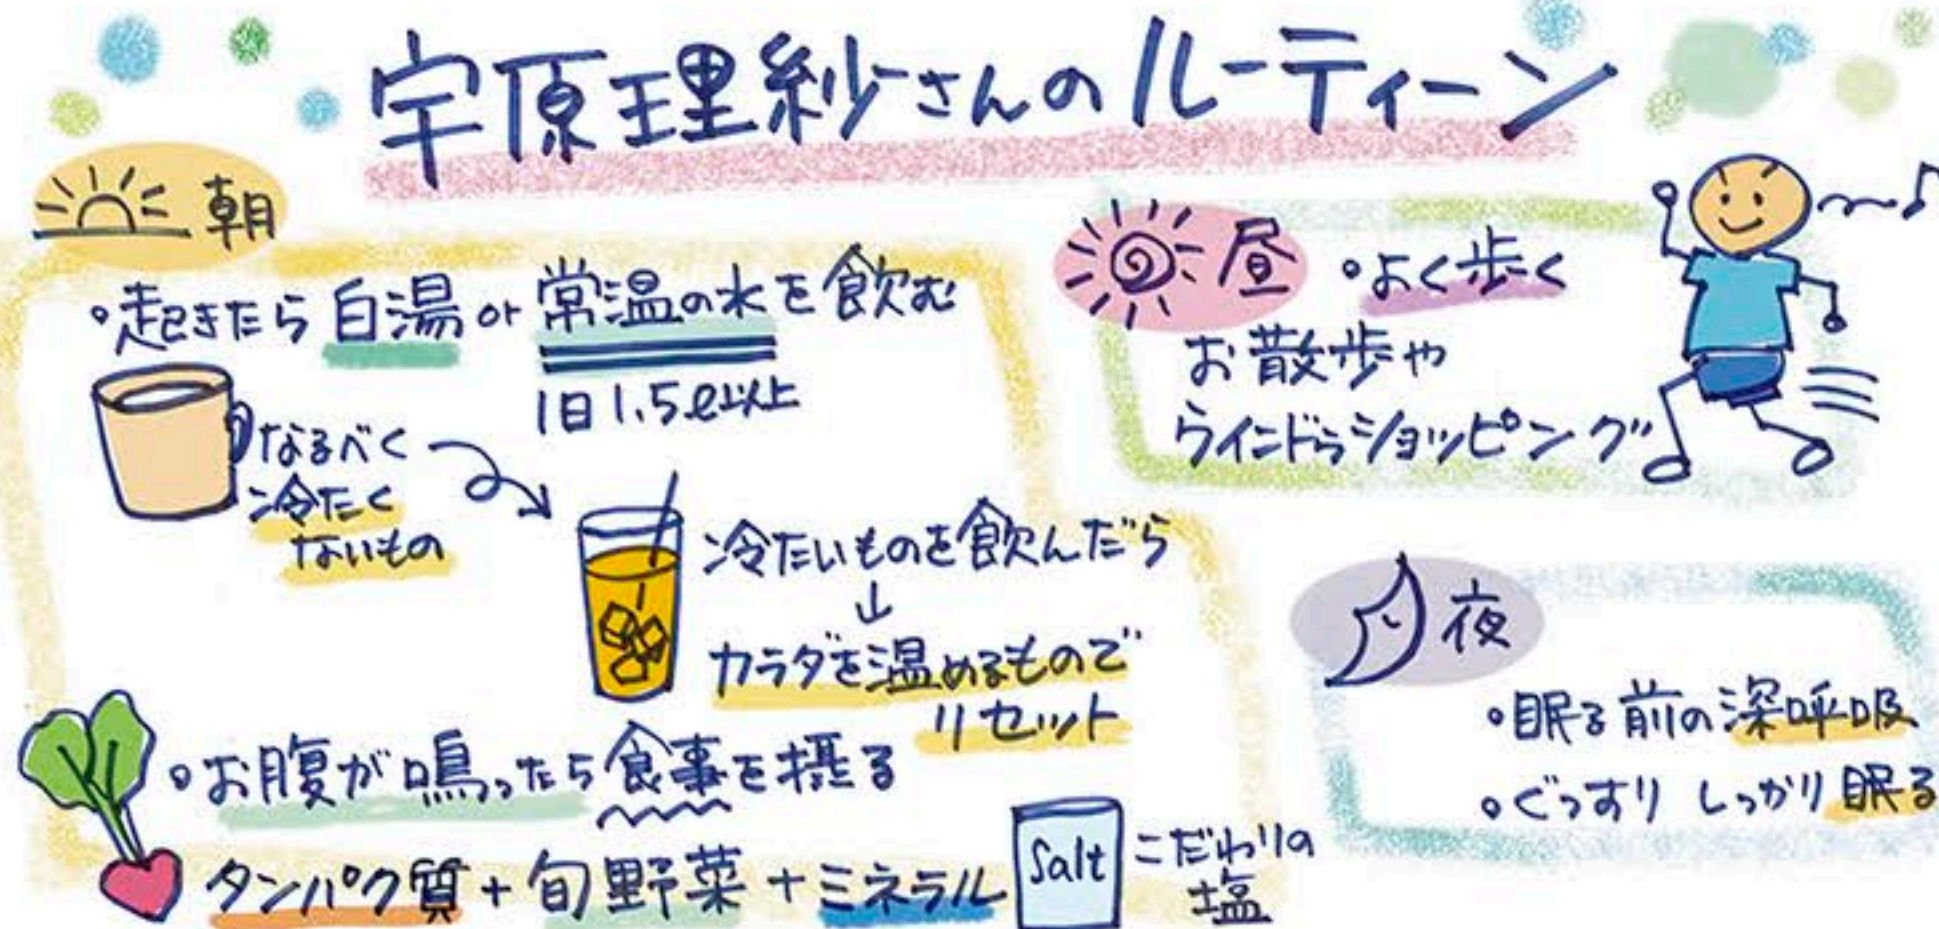 宇原理紗さんのルーティーン
朝
・起きたら白湯or常温の水を飲む
1日1.5ℓ以上
なるべく
冷たく
ないもの
冷たいものを飲んだら
↓
カラダを温めるもので
リセット
・お腹が鳴ったら食事を摂る
タンパク質+旬野菜+ミネラル
Salt
こだわりの
塩
昼
・よく歩く
お散歩や
ウインドウショッピング
夜
・眠る前の深呼吸
・ぐっすり しっかり眠る